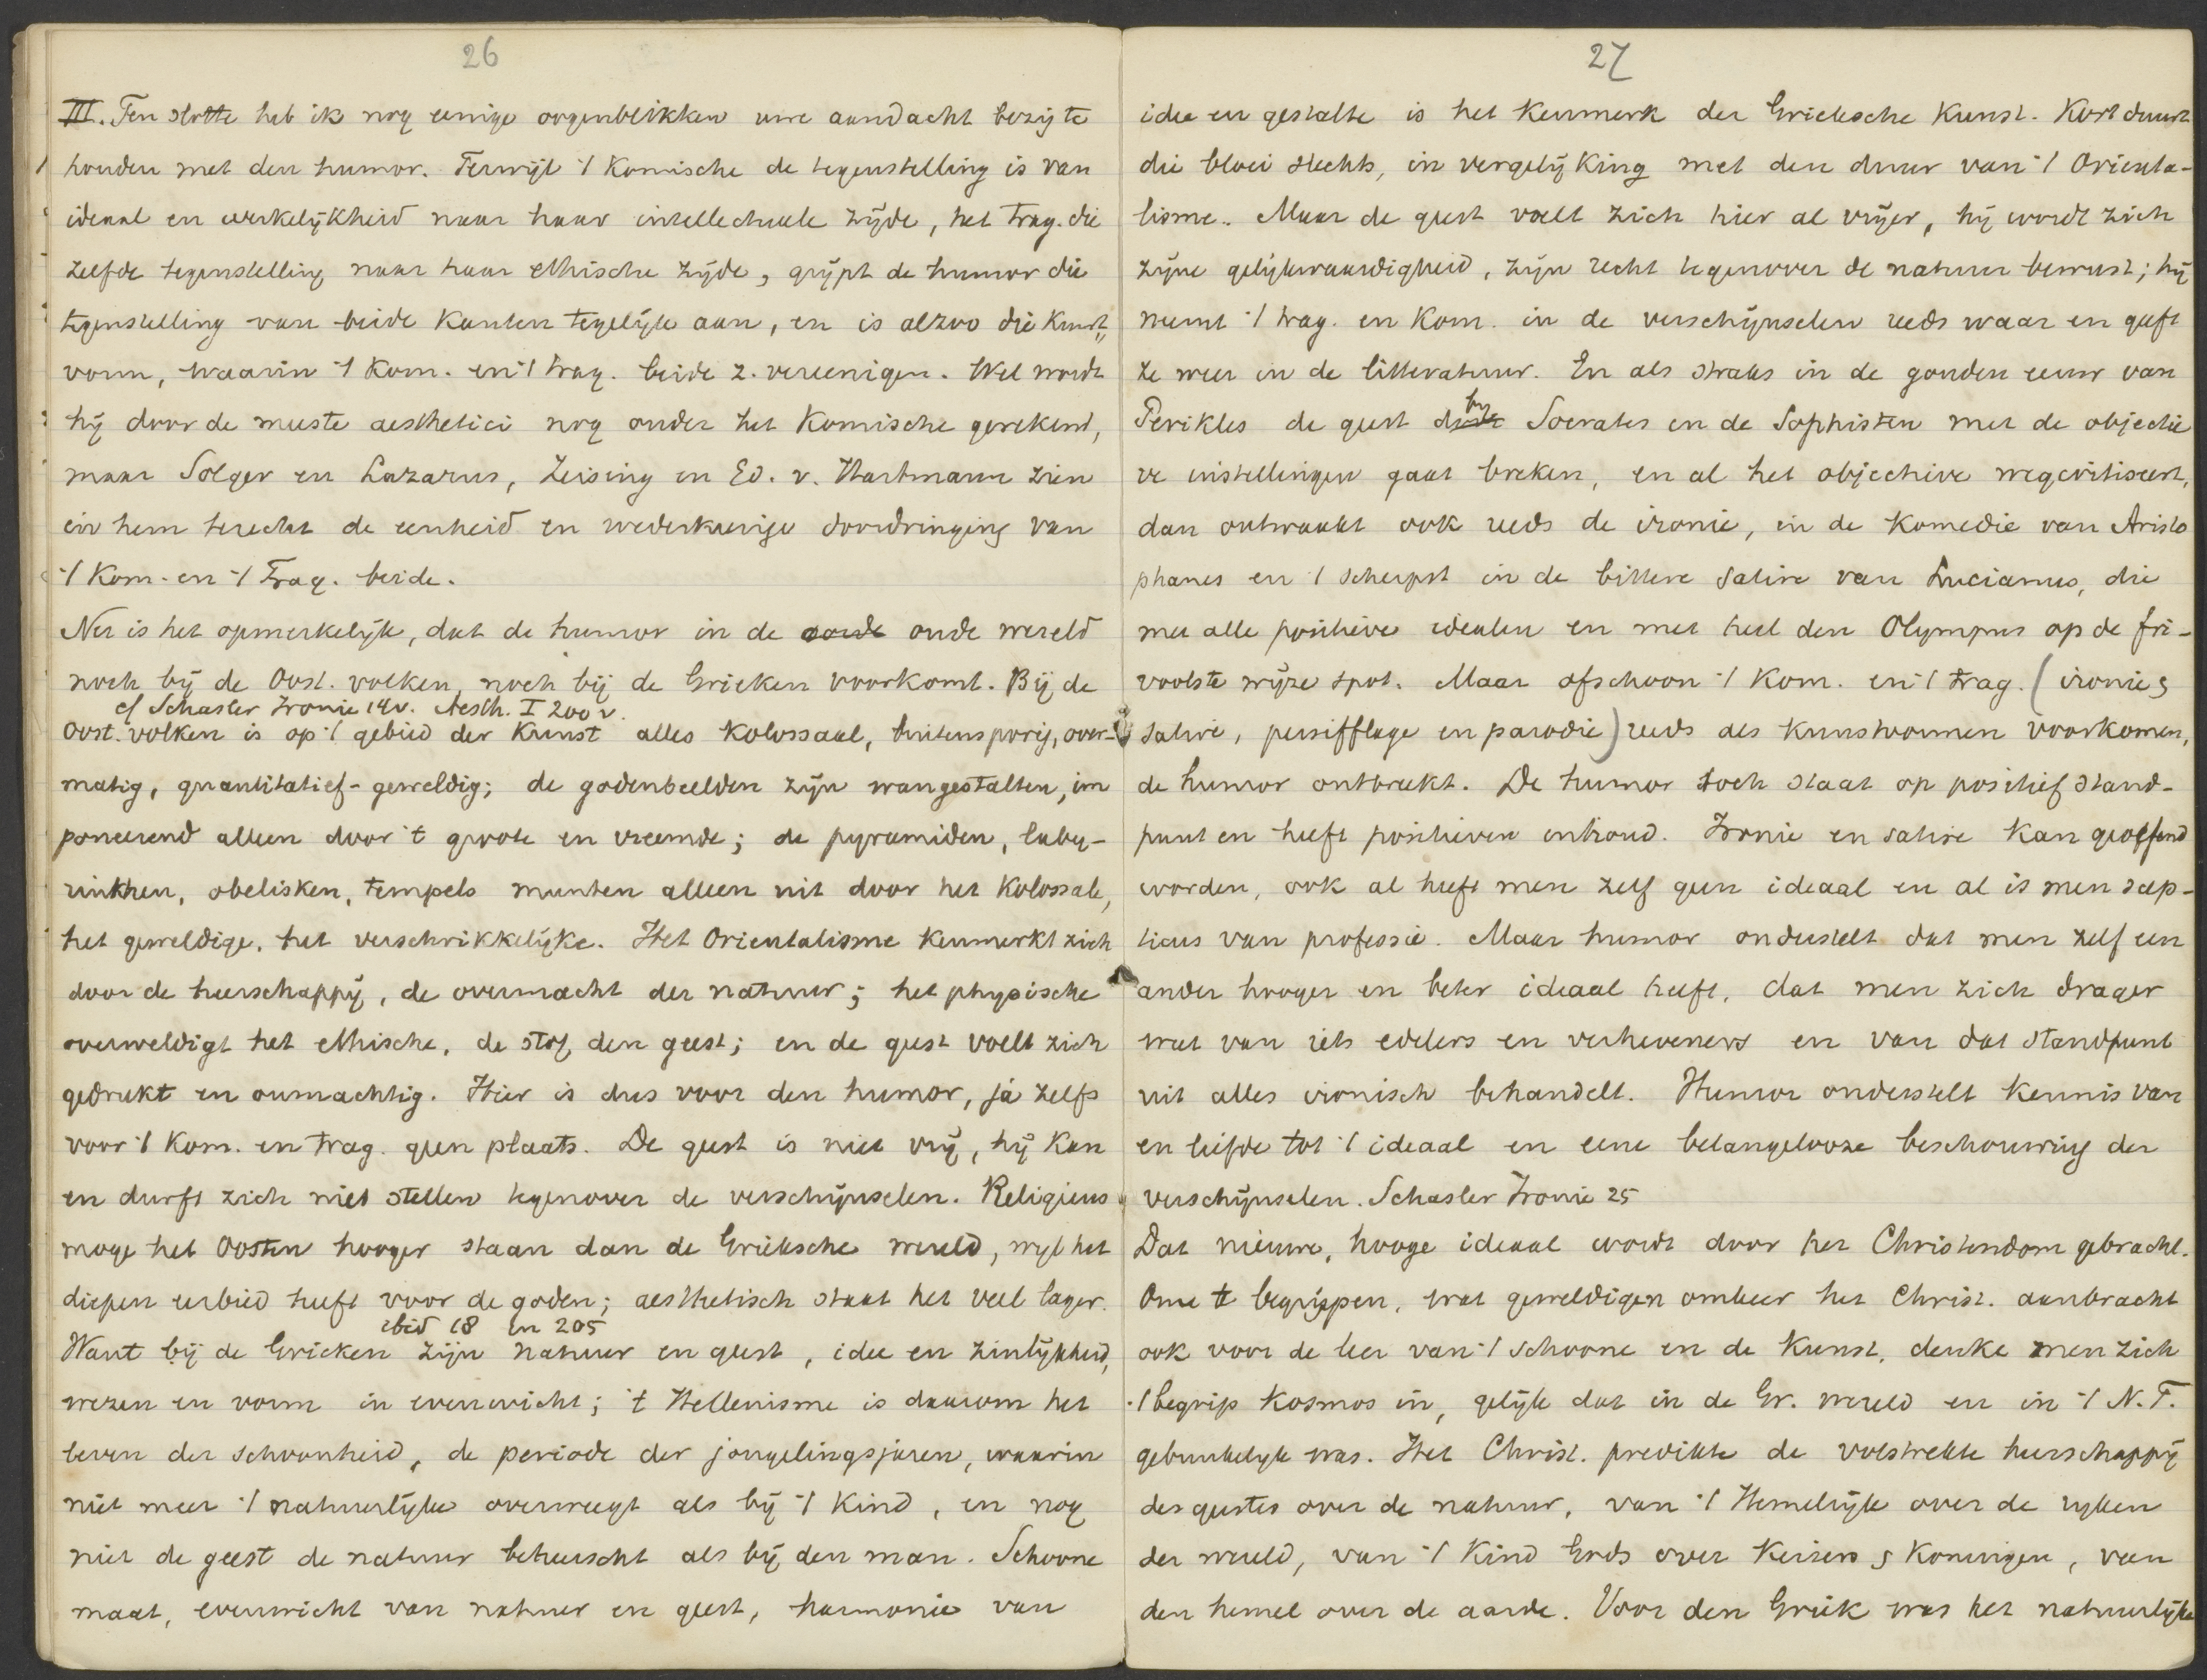 26
III. Ten slotte heb ik nog eenige oogenblikken uwe aandacht bezig te
houden met den humor. Terwijl 't komische de tegenstelling is van
ideaal en werkelijkheid naar haar intellectueele zijde, het trag. die
zelfde tegenstelling naar haar ethische zijde, grijpt de humor die
tegenstelling van beide kanten tegelijk aan, en is alzoo die kunst„
vorm, waarin 't kom. en 't trag. beide z. vereenigen. Wel wordt
hij door de meeste aesthetici nog onder het komische gerekend,
maar Solger en Lazarus, Zeising en Ed. v. Hartmann zien
in hem terecht de eenheid en wederkeerige doordringing van
't kom. en 't Trag. beide.
Nu is het opmerkelijk, dat de humor in de oude wereld
noch bij de Oost. volken, noch bij de Grieken voorkomt. Bij de
cf Schasler Ironie 14v. Aesth. I 200 v.
Oost. volken is op 't gebied der Kunst alles kolossaal, buitensporig, over-
matig, quantitatief-geweldig; de godenbeelden zijn wangestalten, im
poneerend alleen door 't groote en vreemde; de pyramiden, laby-
rinthen, obelisken, tempels munten alleen uit door het kolossale,
het geweldige, het verschrikkelijke. Het Orientalisme kenmerkt zich
door de heerschappij, de overmacht der natuur; het physische
overweldigt het ethische, de stof den geest; en de geest voelt zich
gedrukt en onmachtig. Hier is dus voor den humor, ja zelfs
voor 't kom. en trag. geen plaats. De geest is niet vrij, hij kan
en durft zich niet stellen tegenover de verschijnselen. Religieus
moge het Oosten hooger staan dan de Grieksche wereld, wijl het
diepen eerbied heeft voor de goden; aesthetisch staat het veel lager.
ibid 18 en 205
Want bij de Grieken zijn natuur en geest, idee en zinlijkheid,
wezen en vorm in evenwicht; 't Hellenisme is daarom het
leven der schoonheid, de periode der jongelingsjaren, waarin
niet meer 't natuurlijke overweegt als bij 't kind, en nog
niet de geest de natuur beheerscht als bij den man. Schoone
maat, evenwicht van natuur en geest, harmonie van
27
idee en gestalte is het kenmerk der Grieksche Kunst. Kort duurt
die bloei slechts, in vergelijking met den duur van 't Orienta-
lisme. Maar de geest voelt zich hier al vrijer, hij wordt zich
zijne gelijkwaardigheid, zijn recht tegenover de natuur bewust; hij
neemt 't trag. en kom. in de verschijnselen reeds waar en geeft
ze weer in de litteratuur. En als straks in de gouden eeuw van
Perikles de geest bij Socrates en de Sophisten met de objectie
ve instellingen gaat breken, en al het objectieve wegcritiseert,
dan ontwaakt ook reeds de ironie, in de komedie van Aristo
phanes en 't scherpst in de bittere satire van Lucianus, die
met alle positieve idealen en met heel den Olympus op de fri-
voolste wijze spot. Maar ofschoon 't kom. en 't trag. (ironie &
satire, persifflage en parodie) reeds als kunstvormen voorkomen,
de humor ontbreekt. De humor toch staat op positief stand-
punt en heeft positieven inhoud. Ironie en satire kan geoefend
worden, ook al heeft men zelf geen ideaal en al is men scep-
ticus van professie. Maar humor onderstelt dat men zelf een
ander hooger en beter ideaal heeft, dat men zich drager
weet van iets edelers en verheveners en van dat standpunt
uit alles ironisch behandelt. Humor onderstelt kennis van
en liefde tot 't ideaal en eene belangelooze beschouwing der
verschijnselen. Schasler Ironie 25
Dat nieuwe, hooge ideaal wordt door het Christendom gebracht.
Om te begrijpen, wat geweldigen omkeer het Christ. aanbracht
ook voor de leer van 't schoone en de kunst, denke men zich
't begrip kosmos in, gelijk dat in de Gr. wereld en in 't N.T.
gebruikelijk was. Het Christ. predikte de volstrekte heerschappij
des geestes over de natuur, van 't Hemelrijk over de rijken
der wereld, van 't Kind Gods over keizers & koningen, van
den hemel over de aarde. Voor den Griek was het natuurlijke